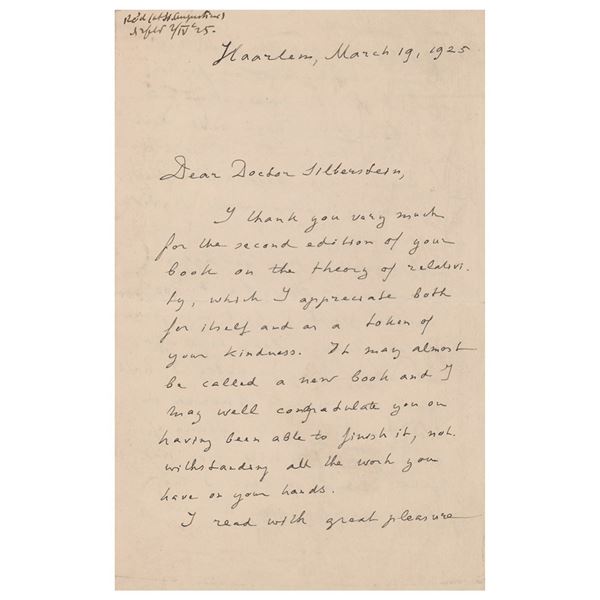 Rec'd (at St Augustine)
2/IV 25.
Haarlem, March 19, 1925
Dear Doctor Silberstein,
I thank you very much
for the second edition of your
book on the theory of relativi-
ty, which I appreciate both
for itself and as a token of
your kindness. It may almost
be called a new book and I
may well congratulate you on
having been able to finish it, not-
withstanding all the work you
have on your hands.
I read with great pleasure